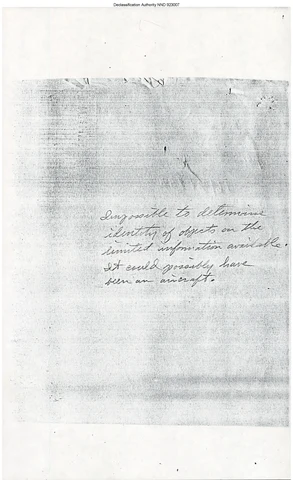 Declassification Authority NND 923007
Impossible to determine
identity of objects on the
limited information available.
It could possibly have
been an aircraft.